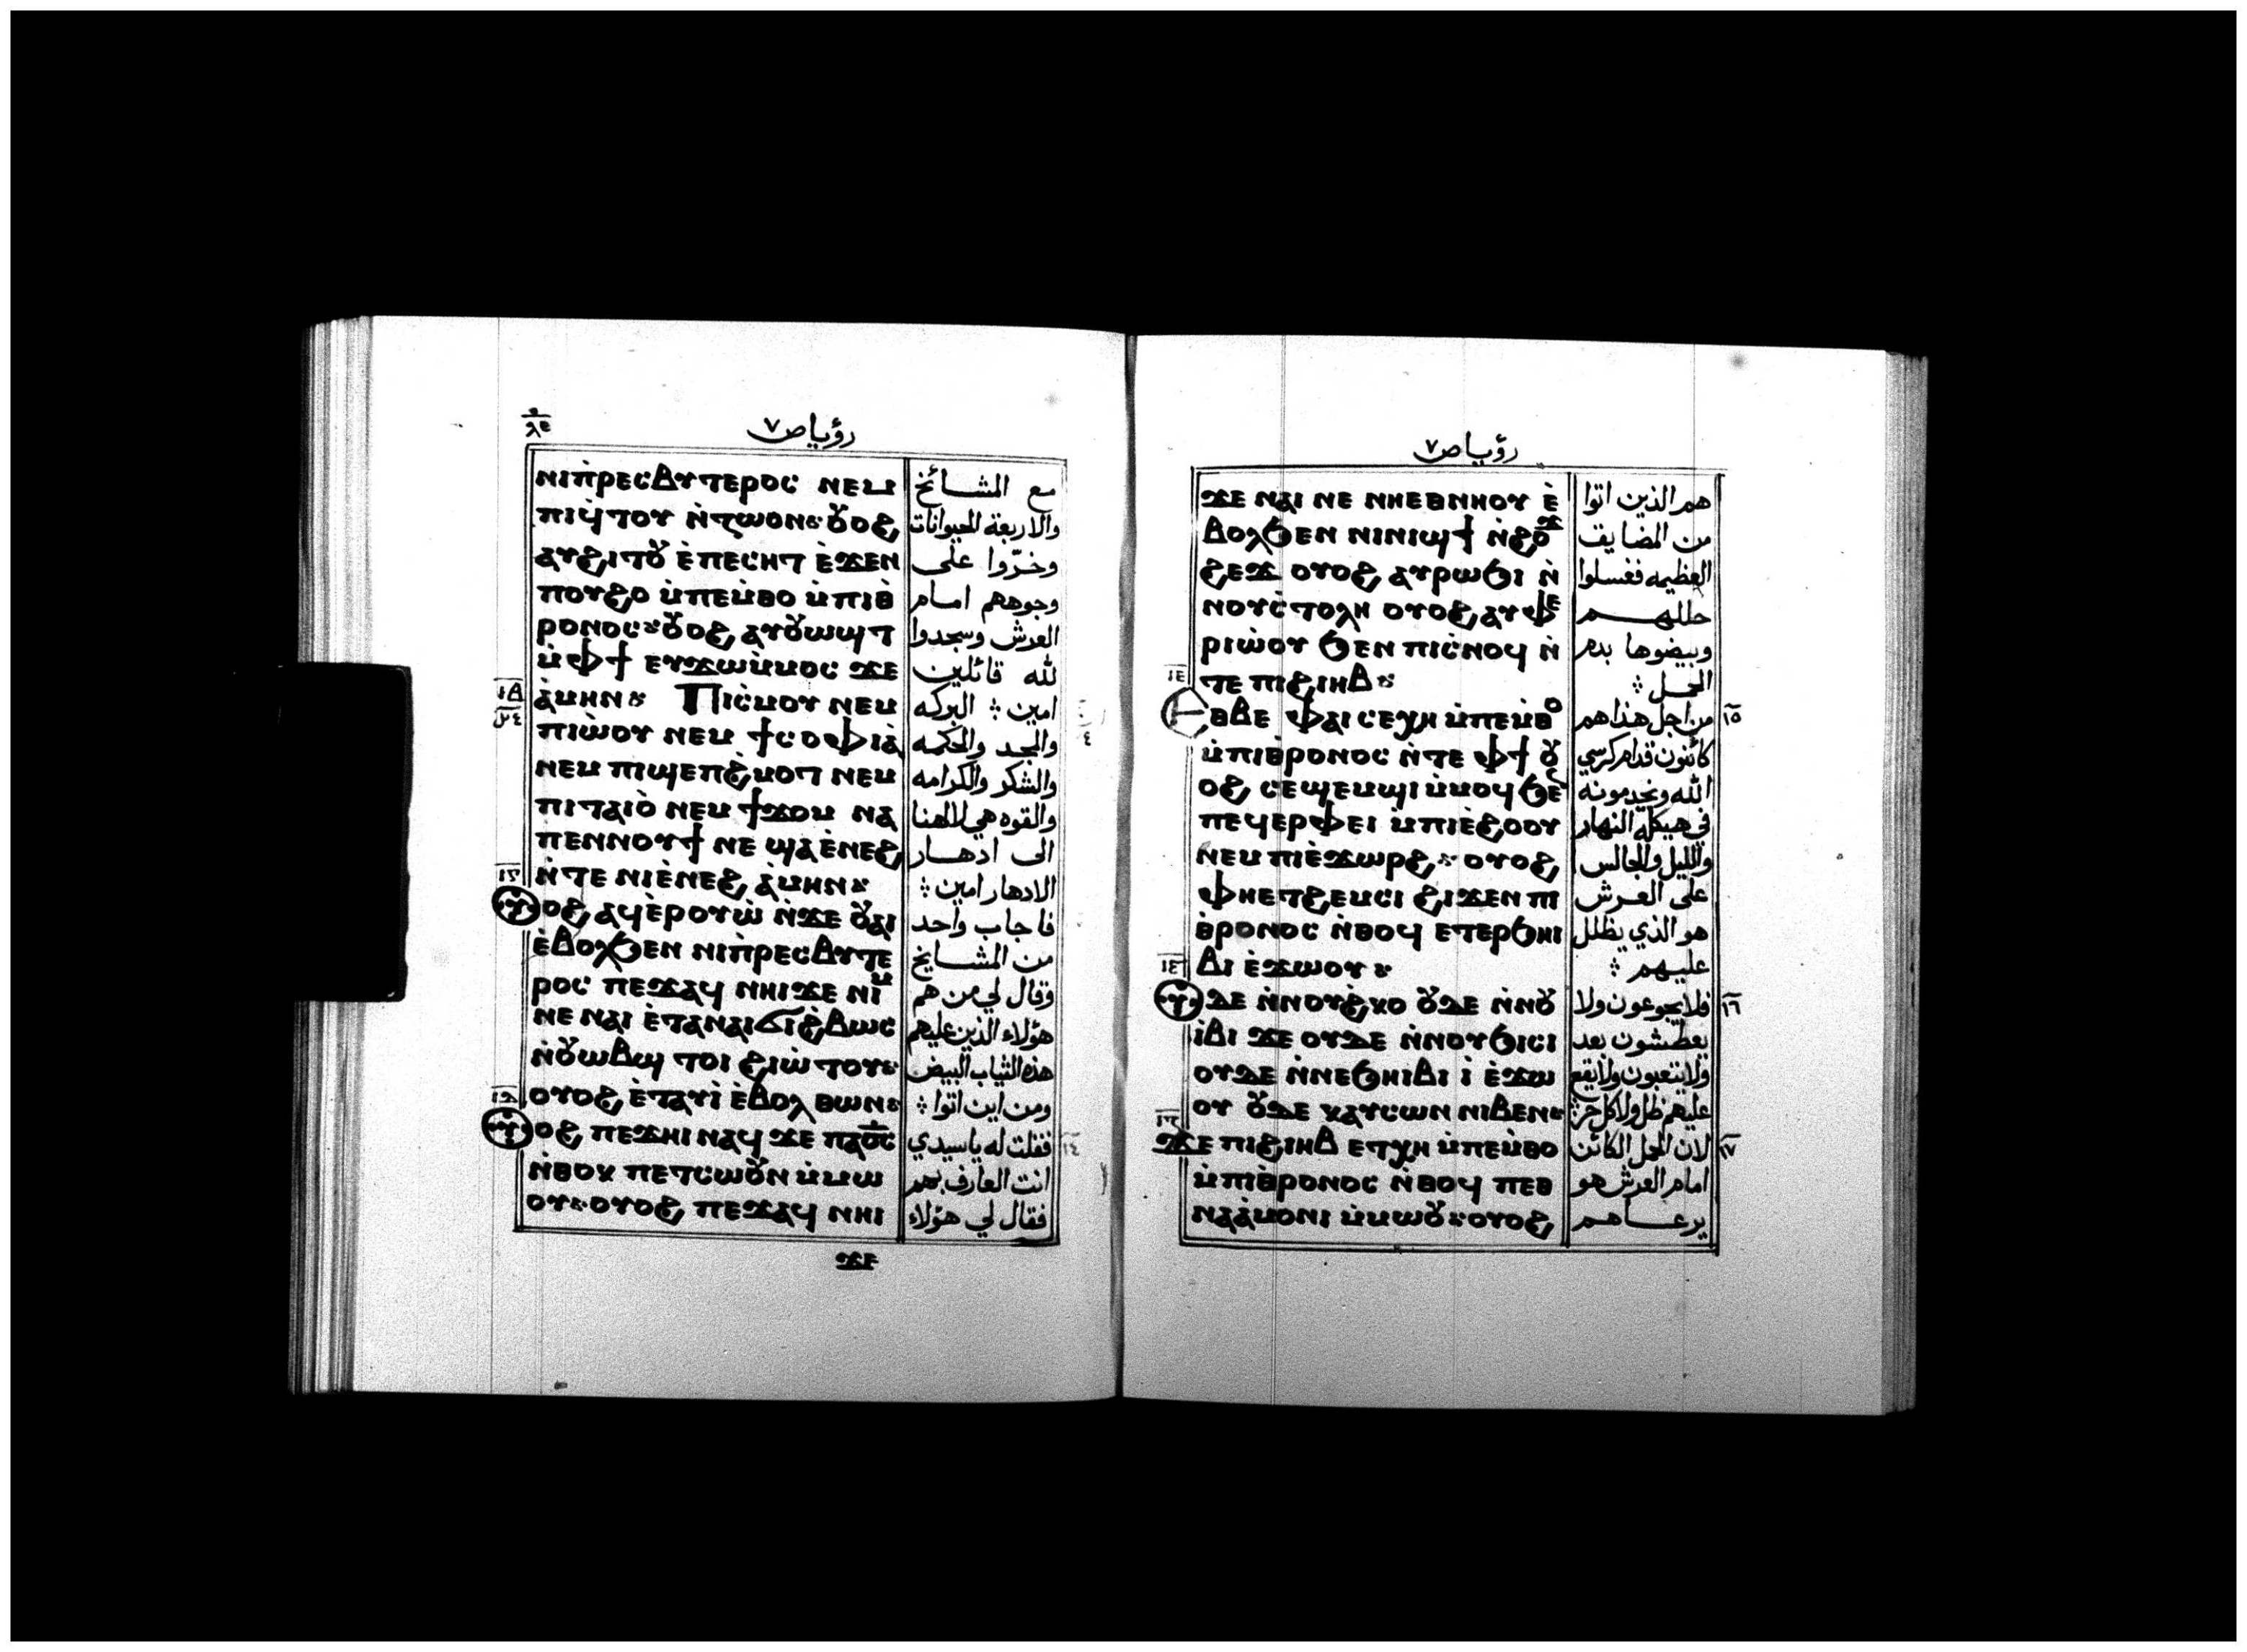 رؤيا ص ٧
ⲛⲓⲡ̀ⲣⲉⲥⲃⲩⲧⲉⲣⲟⲥ ⲛⲉⲙ
ⲡⲓϥ̀ⲧⲟⲩ ⲛ̀ⲍⲱⲟⲛ ⲟⲩⲟϩ
ⲁⲩϩⲓⲧⲟⲩ ⲉ̀ⲡⲉⲥⲏⲧ ⲉ̀ϫⲉⲛ
ⲡⲟⲩϩⲟ ⲙ̀ⲡⲉⲙ̀ⲑⲟ ⲙ̀ⲡⲓⲑ̀
ⲣⲟⲛⲟⲥ ⲟⲩⲟϩ ⲁⲩⲟⲩⲱϣⲧ
ⲙ̀ⲫϯ ⲉⲩϫⲱⲙ̀ⲙⲟⲥ ϫⲉ
ⲁ̀ⲙⲏⲛ Ⲡⲓⲥ̀ⲙⲟⲩ ⲛⲉⲙ
ⲡⲓⲱ̀ⲟⲩ ⲛⲉⲙ ϯⲥⲟⲫⲓⲁ̀
ⲛⲉⲙ ⲡⲓϣⲉⲡϩ̀ⲙⲟⲧ ⲛⲉⲙ
ⲡⲓⲧⲁⲓⲟ̀ ⲛⲉⲙ ϯϫⲟⲙ ⲛⲁ
ⲡⲉⲛⲛⲟⲩϯ ⲛⲉ ϣⲁⲉ̀ⲛⲉϩ
ⲛ̀ⲧⲉ ⲛⲓⲉ̀ⲛⲉϩ ⲁ̀ⲙⲏⲛ
ⲟⲩⲟϩ ⲁϥⲉ̀ⲣⲟⲩⲱ̀ ⲛ̀ϫⲉ ⲟⲩⲁⲓ
ⲉ̀ⲃⲟⲗϧⲉⲛ ⲛⲓⲡ̀ⲣⲉⲥⲃⲩⲧⲉ
ⲣⲟⲥ ⲡⲉϫⲁϥ ⲛⲏⲓ ϫⲉ ⲛⲓⲙ
ⲛⲉ ⲛⲁⲓ ⲉ̀ⲧⲁⲛⲁⲓϭⲓϩ̀ⲃⲱⲥ
ⲛ̀ⲟⲩⲱⲃϣ ⲧⲟⲓ ϩⲓⲱ̀ⲧⲟⲩ
ⲟⲩⲟϩ ⲉ̀ⲧⲁⲩⲓ̀ ⲉ̀ⲃⲟⲗ ⲑⲱⲛ
ⲟⲩⲟϩ ⲡⲉϫⲏⲓ ⲛⲁϥ ϫⲉ ⲡⲁⲟ̅ⲥ̅
ⲛ̀ⲑⲟⲕ ⲡⲉⲧⲥⲱⲟⲩⲛ ⲙ̀ⲙⲱ
ⲟⲩ ⲟⲩⲟϩ ⲡⲉϫⲁϥ ⲛⲏⲓ
ϫⲉ
مع المشائخ
والاربعة الحيوانات
وخرّوا على
وجوههم امام
العرش وسجدوا
لله قائلين
امين : البركه
والمجد والحكمه
والشكر والكرامه
والقوه هي لالهنا
الى ادهار
الادهار امين :
فاجاب واحد
من المشايخ
وقال لي من هم
هؤلاء الذين عليهم
هذه الثياب البيض
ومن اين اتوا :
فقلت له ياسيدي
انت العارف بهم
فقال لي هؤلاء
رؤيا ص ٧
ϫⲉ ⲛⲁⲓ ⲛⲉ ⲛⲏⲉⲑⲛⲏⲟⲩ ⲉ̀
ⲃⲟⲗϧⲉⲛ ⲛⲓⲛⲓϣϯ ⲛ̀ϩⲟϫ
ϩⲉϫ ⲟⲩⲟϩ ⲁⲩⲣⲱϧⲓ ⲛ̀
ⲛⲟⲩⲥ̀ⲧⲟⲗⲏ ⲟⲩⲟϩ ⲁⲩⲫⲉ
ⲣⲓⲱ̀ⲟⲩ ϧⲉⲛ ⲡⲓⲥ̀ⲛⲟϥ ⲛ̀
ⲧⲉ ⲡⲓϩⲓⲏⲃ
ⲉⲑⲃⲉ ⲫⲁⲓ ⲥⲉⲭⲏ ⲙ̀ⲡⲉⲙ̀ⲑⲟ
ⲙ̀ⲡⲓⲑ̀ⲣⲟⲛⲟⲥ ⲛ̀ⲧⲉ ⲫϯ ⲟⲩ
ⲟϩ ⲥⲉϣⲉⲙϣⲓ ⲙ̀ⲙⲟϥ ϧⲉⲛ
ⲡⲉϥⲉⲣⲫⲉⲓ ⲙ̀ⲡⲓⲉ̀ϩⲟⲟⲩ
ⲛⲉⲙ ⲡⲓⲉ̀ϫⲱⲣϩ ⲟⲩⲟϩ
ⲫⲏⲉⲧϩⲉⲙⲥⲓ ϩⲓϫⲉⲛ ⲡⲓ
ⲑ̀ⲣⲟⲛⲟⲥ ⲛ̀ⲑⲟϥ ⲉⲧⲉⲣϧⲏⲓ
ⲃⲓ ⲉ̀ϫⲱⲟⲩ
ⲟⲩⲇⲉ ⲛ̀ⲛⲟⲩϩ̀ⲕⲟ ⲟⲩⲇⲉ ⲛ̀ⲛⲟⲩ
ⲓ̀ⲃⲓ ϫⲉ ⲟⲩⲇⲉ ⲛ̀ⲛⲟⲩϧⲓⲥⲓ
ⲟⲩⲇⲉ ⲛ̀ⲛⲉϧⲏⲓⲃⲓ ⲓ̀ ⲉ̀ϫⲱ
ⲟⲩ ⲟⲩⲇⲉ ⲕⲁⲩⲥⲱⲛ ⲛⲓⲃⲉⲛ
ϫⲉ ⲡⲓϩⲓⲏⲃ ⲉⲧⲭⲏ ⲙ̀ⲡⲉⲙ̀ⲑⲟ
ⲙ̀ⲡⲓⲑ̀ⲣⲟⲛⲟⲥ ⲛ̀ⲑⲟϥ ⲡⲉⲑ
ⲛⲁⲁ̀ⲙⲟⲛⲓ ⲙ̀ⲙⲱⲟⲩ ⲟⲩⲟϩ
هم الذين اتوا
من المضايق
العظيمه فغسلوا
حللهم
وبيضوها بدم
الحمل :
١٥ من اجل هذا هم
كائنون قدام كرسي
الله ويخدمونه
في هيكله النهار
والليل والجالس
على العرش
هو الذي يظلل
عليهم :
١٦ فلا يجوعون ولا
يعطشون بعد
ولا يتعبون ولا يقع
عليهم ظل ولا كل حر
١٧ لان الحمل الكائن
امام العرش هو
يرعاهم